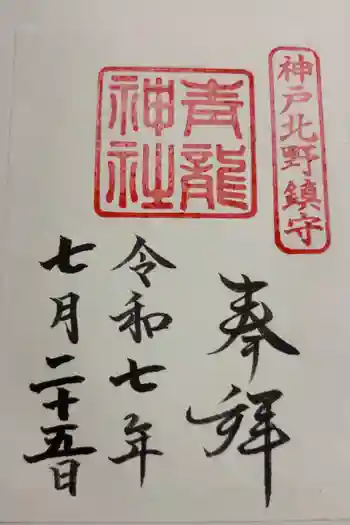 神戸北野鎮守
奉拝
青龍
神社
令和七年
七月二十五日